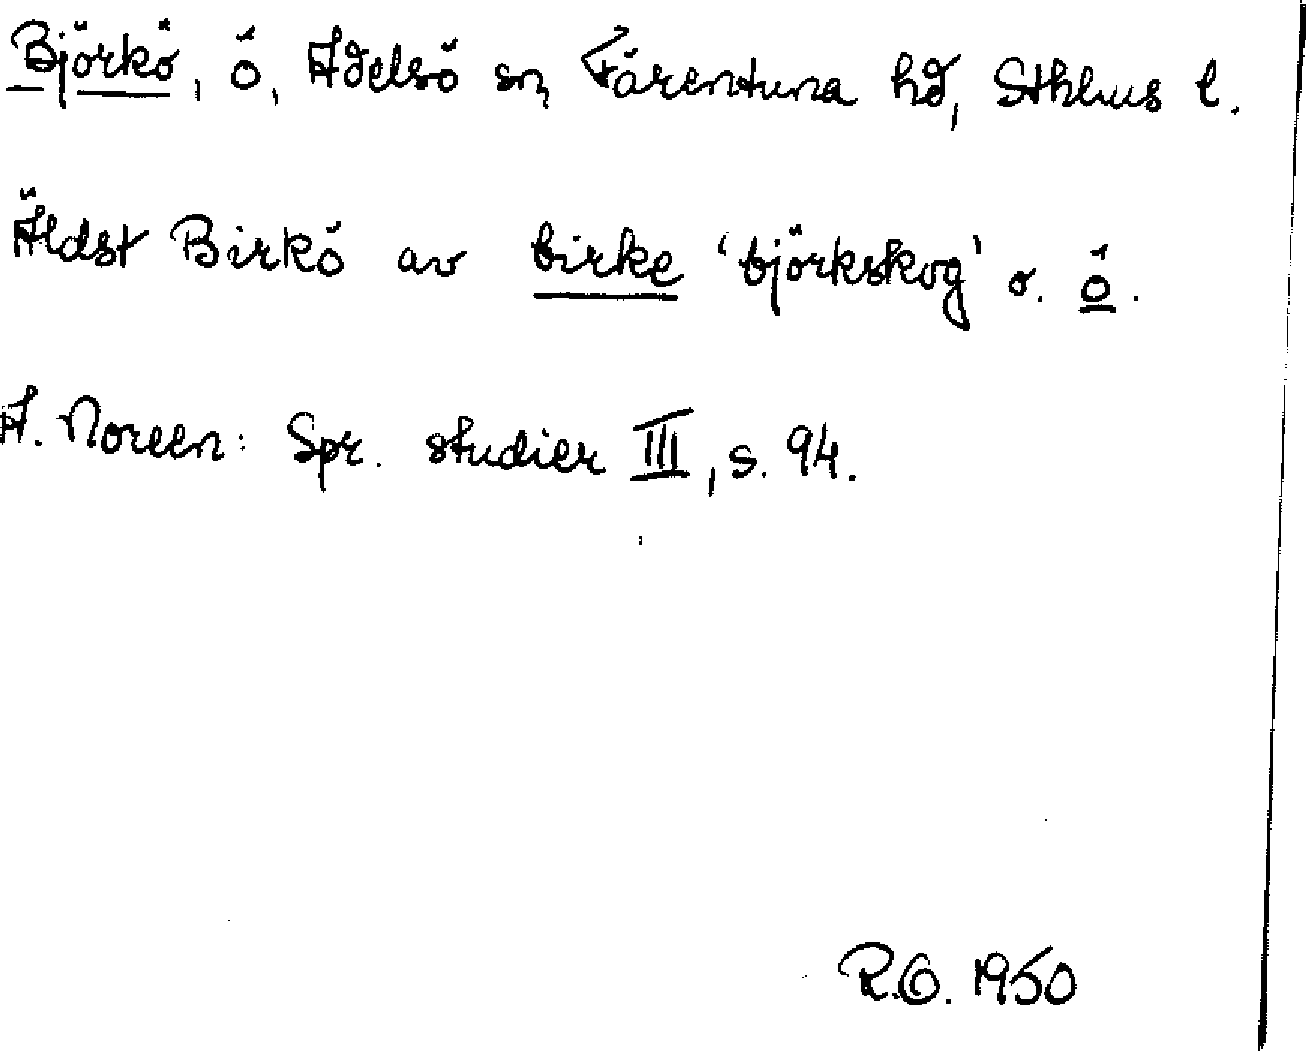 Björkö, ö, Adelsö sn, Färentuna hd, Sthlms l.
Äldst Birkö av birke 'björkskog' o. ö.
A. Noreen: Spr. studier III, s. 94.
R.O. 1950